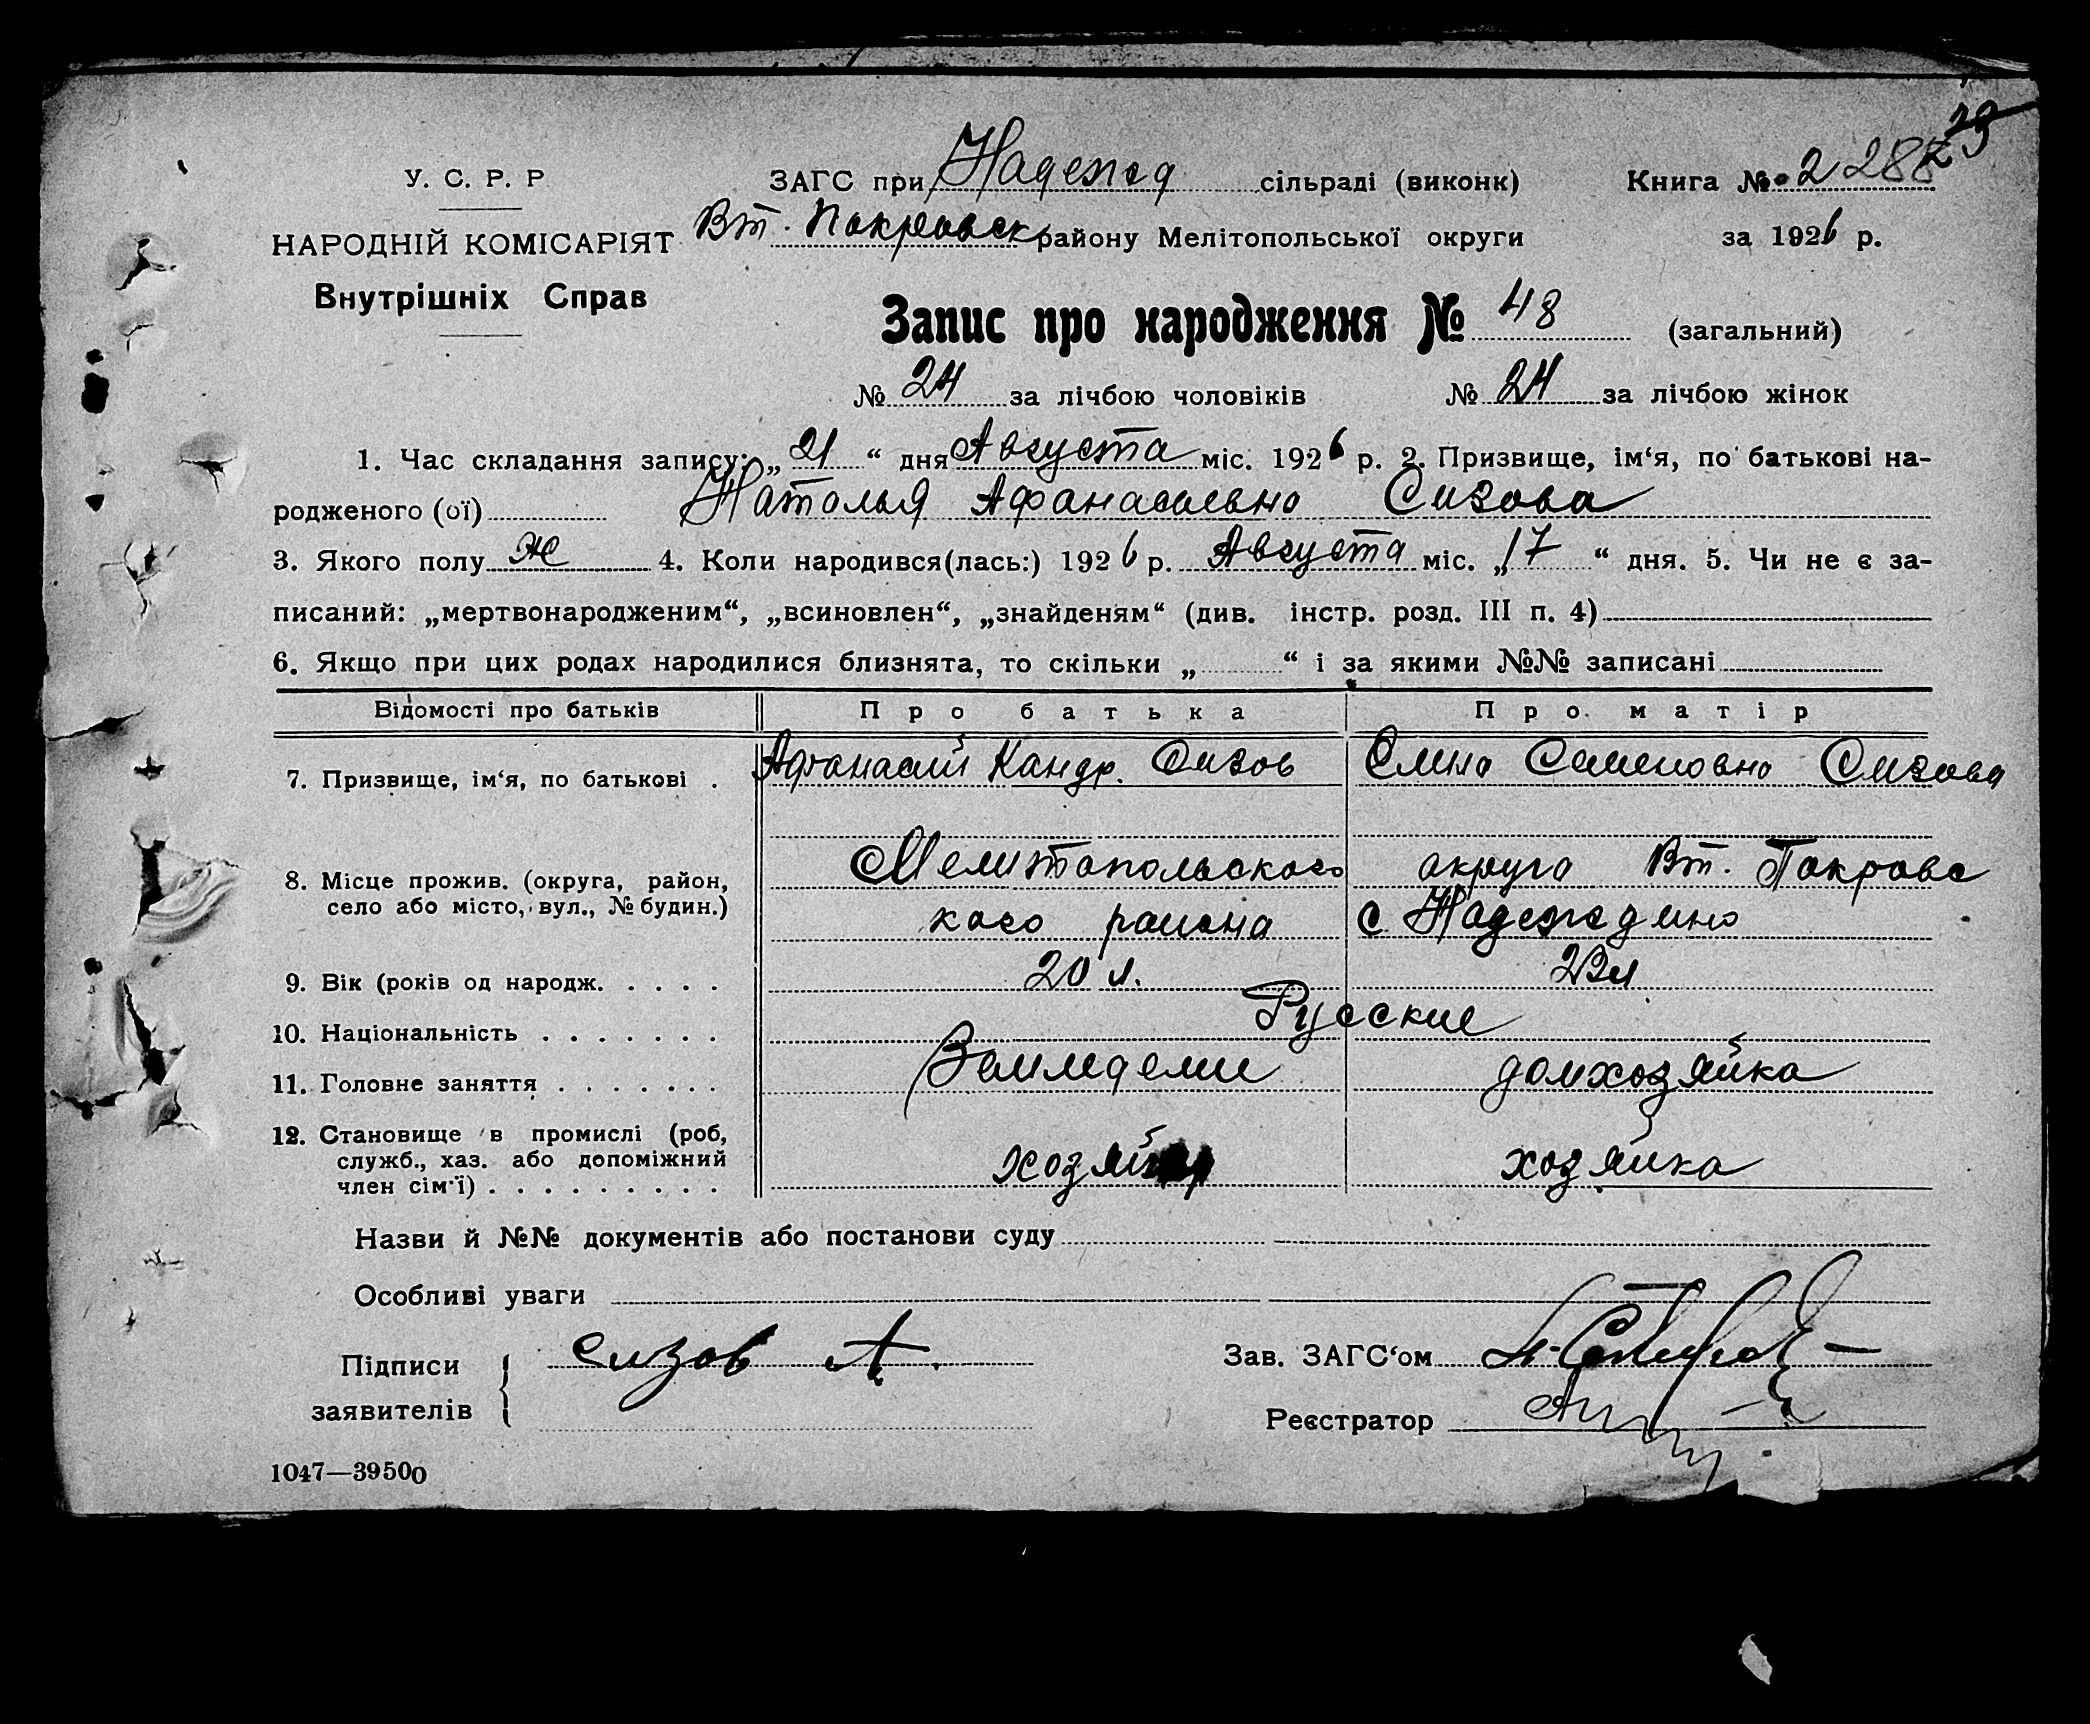 У. С. Р. Р
НАРОДНІЙ КОМІСАРІЯТ
Внутрішніх Справ
ЗАГС при Надежд сільраді (виконк)
Вт. Покровск району Мелітопольської округи
Книга № 2 288
29
за 1926 р.
Запис про народження № 48 (загальний)
№ 24 за лічбою чоловіків № 24 за лічбою жінок
1. Час складання запису: „ 21 “ дня Августа міс. 1926 р. 2. Призвище, ім‘я, по батькові на-
родженого (ої) Наталья Афанасьевна Сизова
3. Якого полу ж 4. Коли народився(лась:) 1926 р. Августа міс. „ 17 “ дня. 5. Чи не є за-
писаний: „мертвонародженим“, „всиновлен“, „знайденям“ (див. інстр. розд. III п. 4)
6. Якщо при цих родах народилися близнята, то скільки „ “ і за якими №№ записані
Відомості про батьків Про батька Про матір
7. Призвище, ім‘я, по батькові . Афанасий Кандр. Сизов Елена Семеновна Сизова
8. Місце прожив. (округа, район,
село або місто, вул., № будин.)
Мелитопольского округа Вт. Покровс
кого района с Надеждино
9. Вік (років од народж. . . . . 20 л.
10. Національність . . . . . . . Русские
11. Головне заняття . . . . . . . Земледели домхозяйка
12. Становище в промислі (роб,
служб., хаз. або допоміжний
член сім‘ї) . . . . . . . . .
хозяин хозяйка
Назви й №№ документів або постанови суду
Особливі уваги
Підписи
заявителів
Сизов А.
Зав. ЗАГС‘ом
Реєстратор
1047—39500